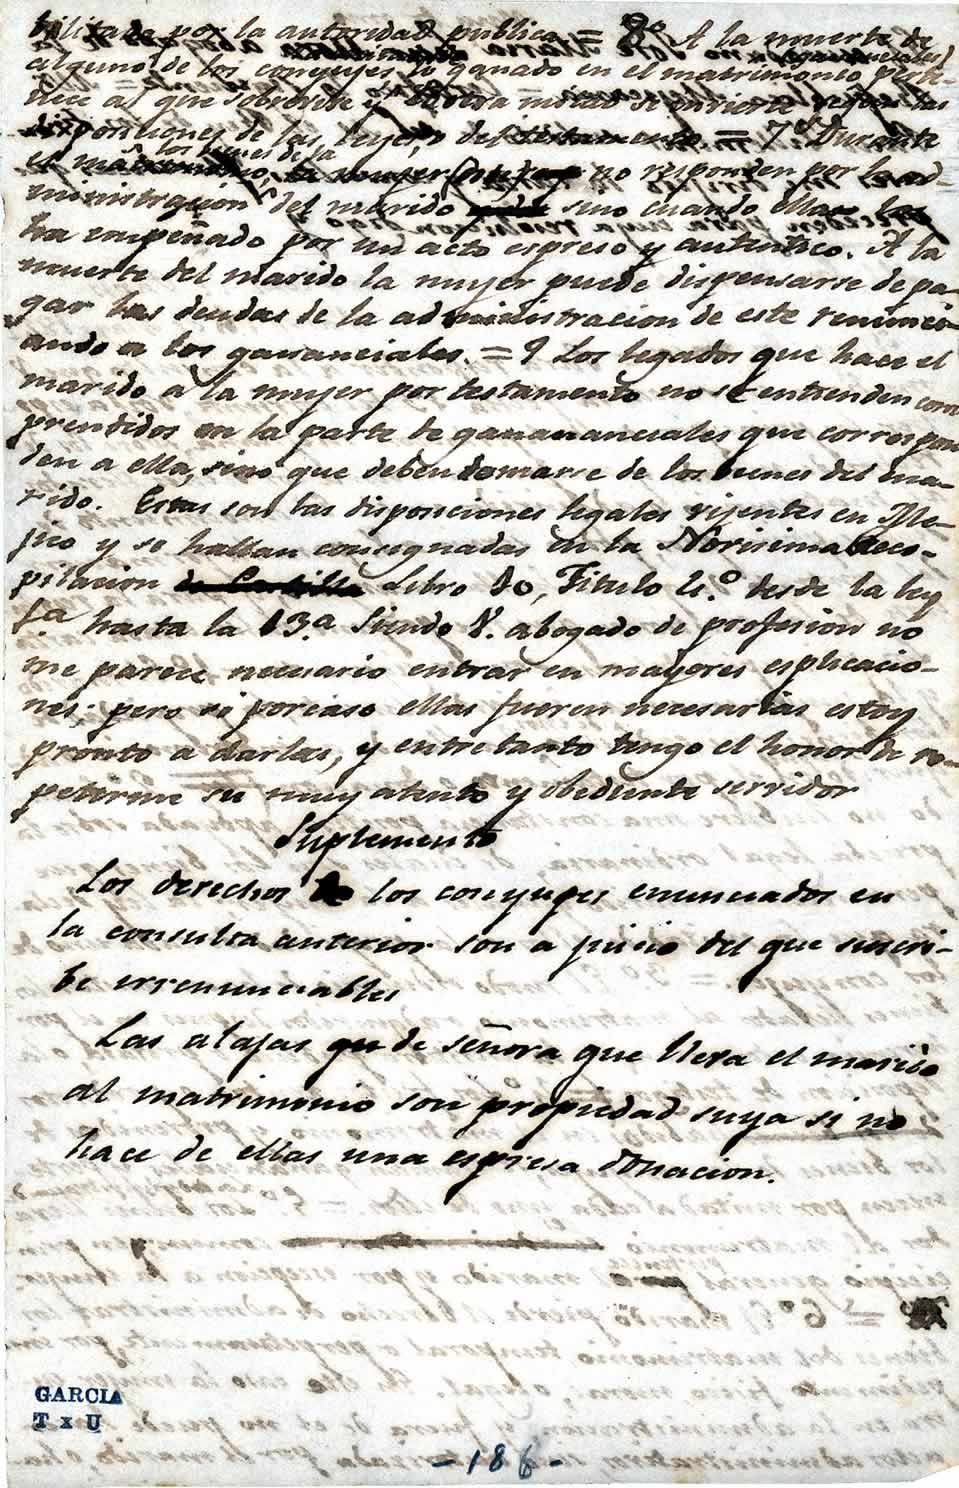 bilitada por la autoridad publica = 8º A la muerte de
alguno de los conyujes lo ganado en el matrimonio (gananciales) perte-
nece al que sobrevive y la otra mitad se invierte segun las
disposiciones de las leyes, o del testamento = 7º Durante
el matrimonio, los bienes de la muger no responden por la ad-
ministracion del marido sino cuando ella los
ha empeñado por un acto espreso y autentico. A la
muerte del marido la mujer puede dispensarse de pa-
gar las deudas de la administracion de este renunci-
ando a los gananciales. = 9 Los legados que hace el
marido a la mujer por testamento no se entienden com
prendidos en la parte de ganananciales que correspon
den a ella, sino que deben tomarse de los bienes del ma-
rido. Estas son las disposiciones legales vijentes en Me-
jico y se hallan consignadas en la Novisima Reco-
pilacion de Castilla Libro 10, Titulo 4.º desde la ley
1ª hasta la 13.ª Siendo V. abogado de profesion no
me parece necesario entrar en mayores esplicacio-
nes; pero si por caso ellas fueren necesarias estoy
pronto a darlas, y entre tanto tengo el honor de re-
petirme su muy atento y obediente servidor
Suplemento
Los derechos de los conyuges enunciados en
la consulta anterior son a juicio del que suscri-
be irrenunciables
Las alajas que de señora que lleva el marido
al matrimonio son propiedad suya si no
hace de ellas una espresa donacion.
GARCIA
T x U
- 186 -